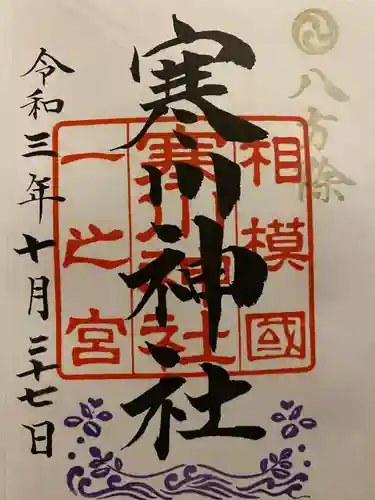 八方除
相模國
寒川神社
一之宮
寒川神社
令和三年十月二十七日